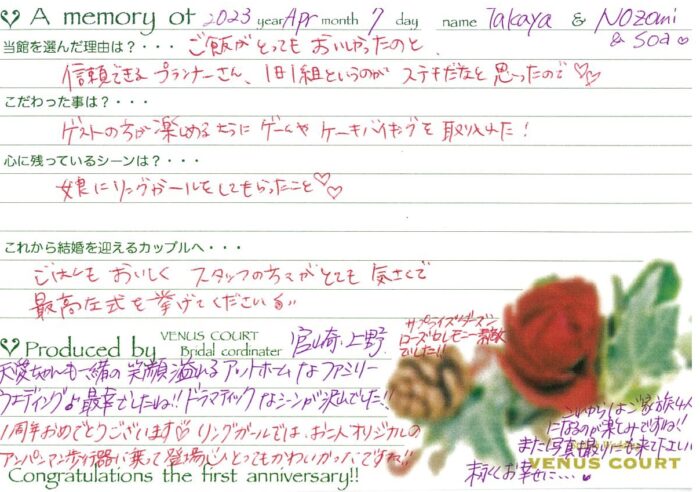 A memory of 2023 year Apr month 7 day name Takaya & Nozomi
& soa♡
当館を選んだ理由は？・・・ ご飯がとってもおいしかったのと、
信頼できるプランナーさん、1日1組というのがステキだなと思ったので♡♡
こだわった事は？・・・
ゲストの方が楽しめるようにゲームやケーキバイキングを取り入れた！
心に残っているシーンは？・・・
娘にリングガールをしてもらったこと♡♡
これから結婚を迎えるカップルへ・・・
ごはんもおいしく スタッフの方々がとても気さくで
最高な式を挙げてください
サプライズダーズン
ローズセレモニー素敵
でした!!
Produced by VENUS COURT
Bridal cordinater 宮崎・上野
天愛ちゃんも一緒の笑顔溢れるアットホームなファミリー
ウェディング 最幸でしたね!! ドラマティックなシーンが沢山でした!!
1周年おめでとうございます♡ リングガールでは、お二人オリジナルの
アンパンマン歩行器に乗って登場し とってもかわいかったですね!!
これからはご家族4人
になるのが楽しみですね!!
また写真撮りにも来て下さい
末永くお幸せに・・・
Congratulations the first anniversary!!
VENUS COURT